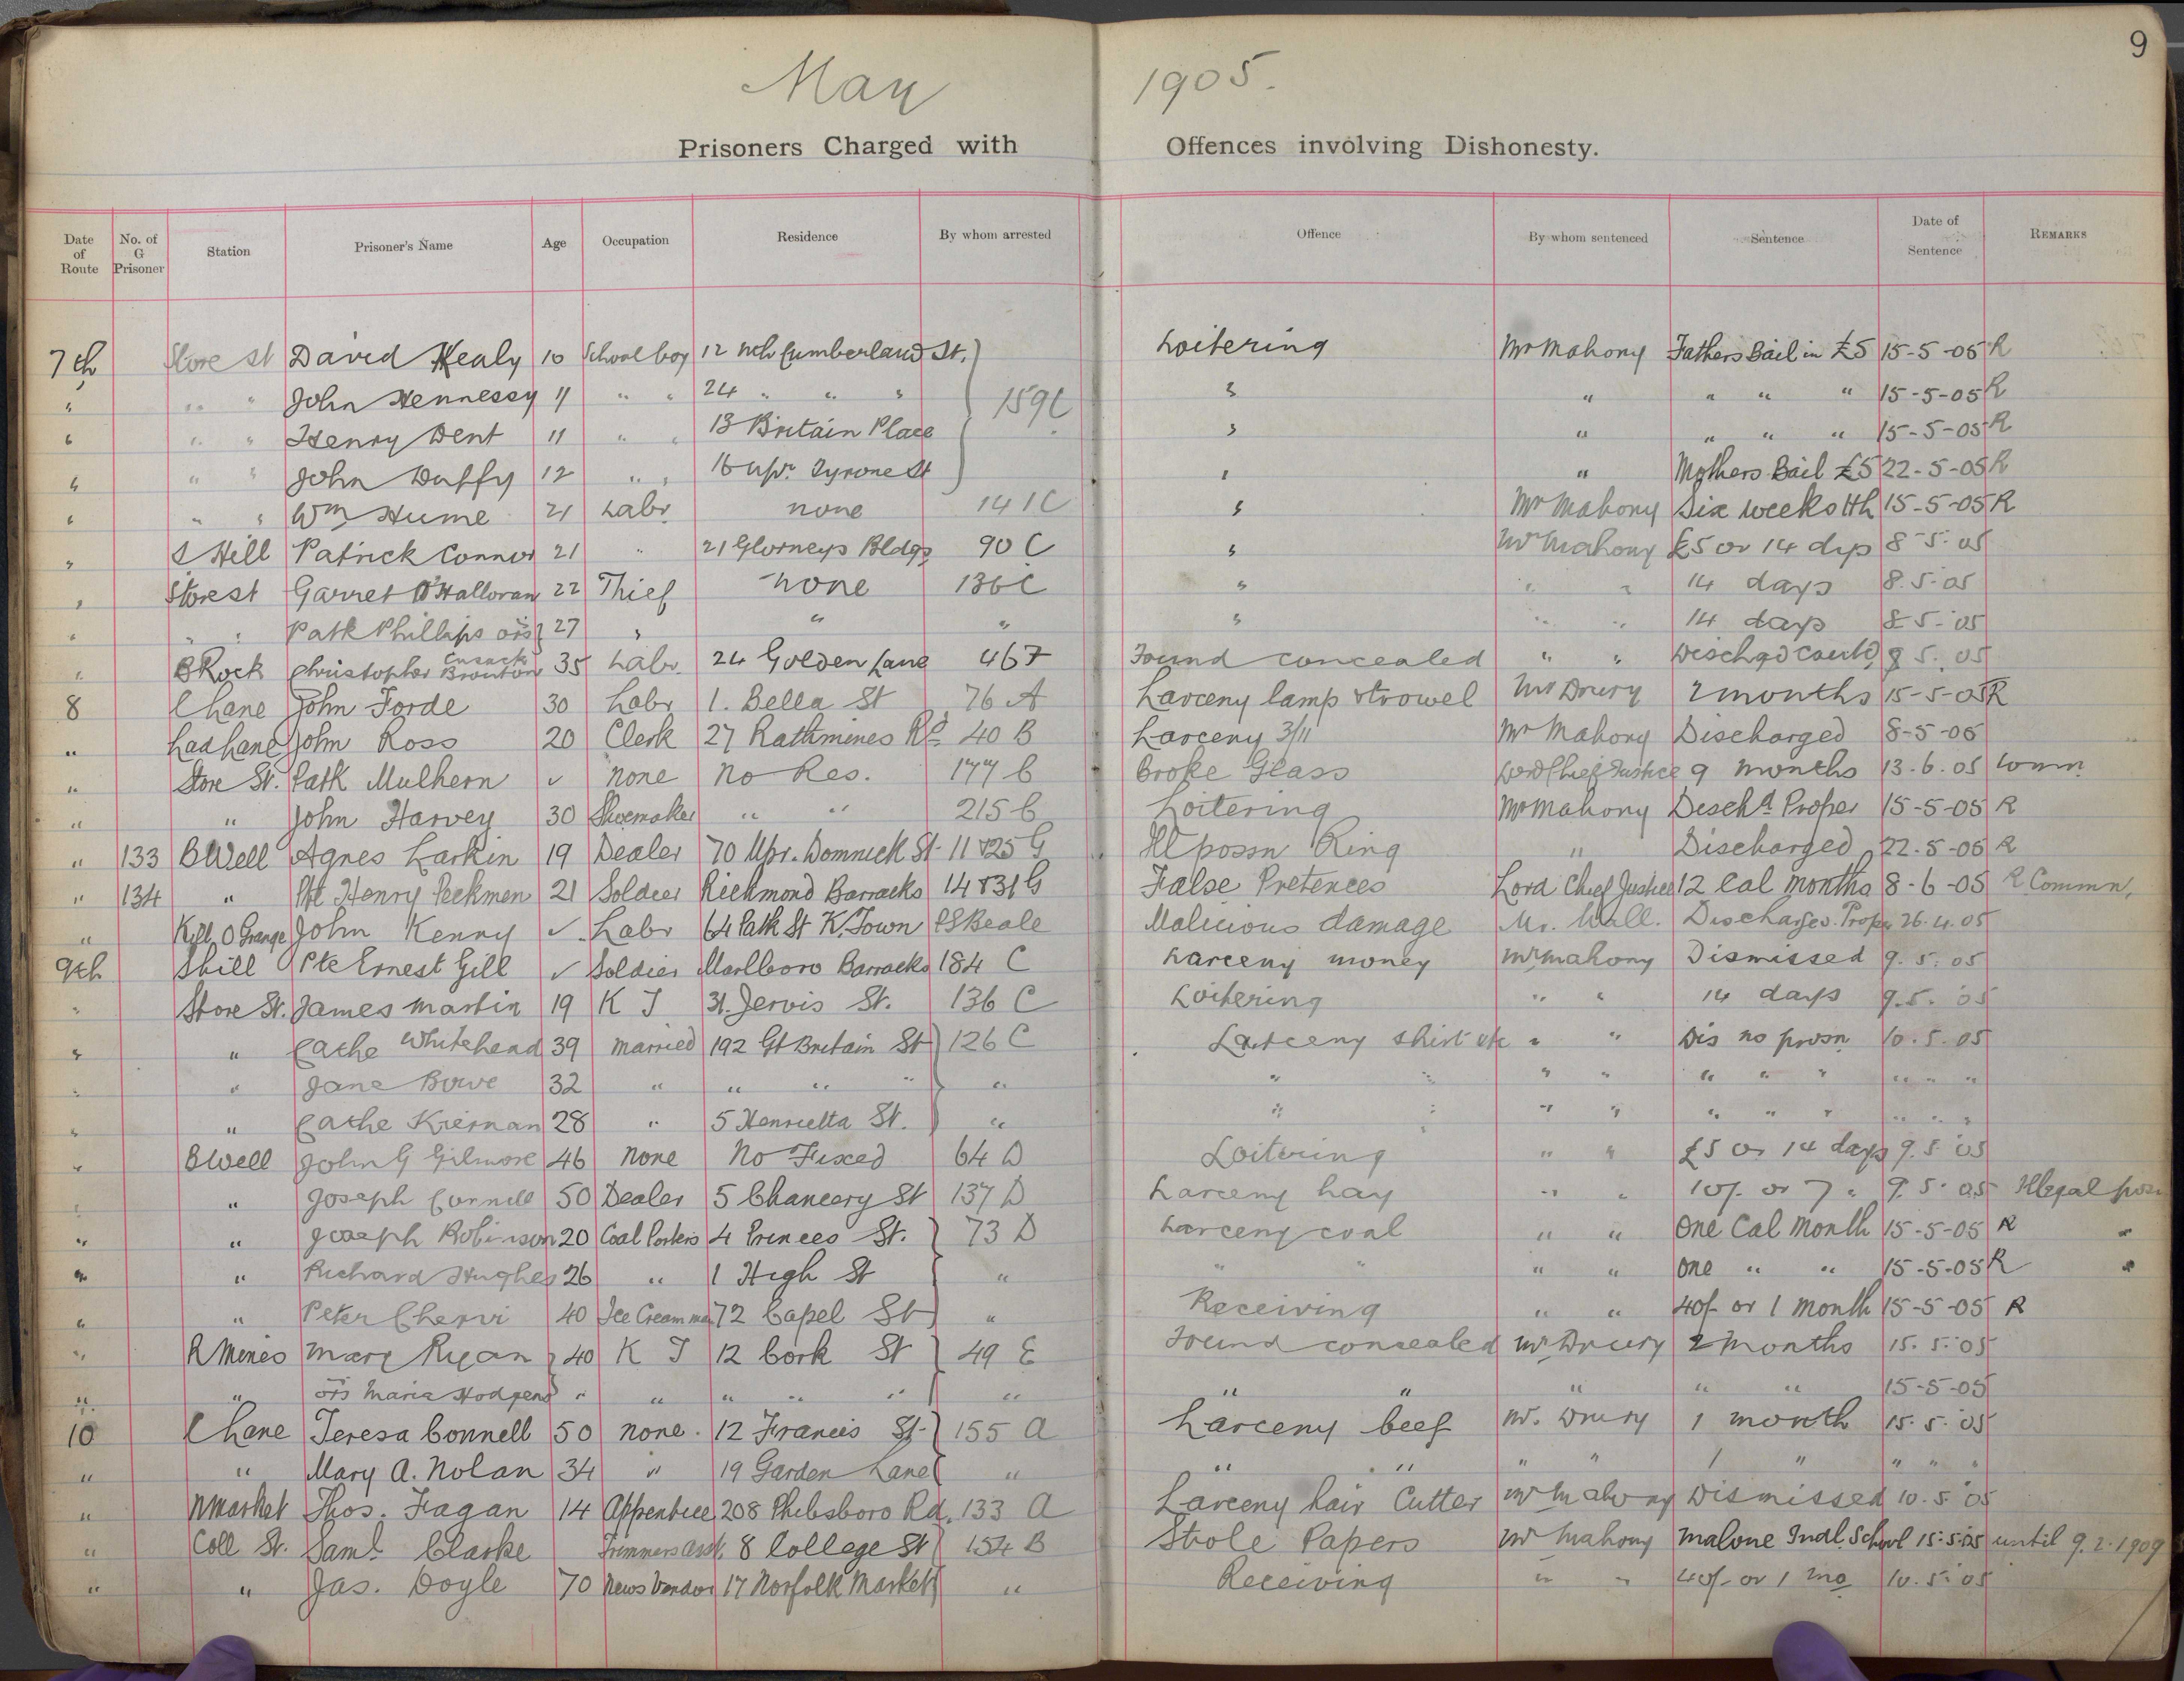 9
May 1905.
Prisoners Charged with Offences involving Dishonesty.
Date of Route | No. of G Prisoner | Station | Prisoner's Name | Age | Occupation | Residence | By whom arrested | Offence | By whom sentenced | Sentence | Date of Sentence | REMARKS
7th Store St David Healy 10 School boy 12 Nth Cumberland St. Loitering Mr Mahony Fathers Bail in £5 15-5-05 R
" " " John Hennessy 11 " " 24 " " " 159C " " " " " 15-5-05 R
" " " Henry Dent 11 " " 13 Britain Place " " " " " 15-5-05 R
" " " John Duffy 12 " " 16 Upr. Tyrone St " " Mothers Bail £5 22-5-05 R
" " " Wm Hume 21 Labr none 141C " Mr Mahony Six weeks Hh 15-5-05 R
" S Hill Patrick Connor 21 " 21 Glorneys Bldgs 90 C " Mr Mahony £5 or 14 dys 8-5-05
" Store st Garret O'Halloran 22 Thief none 136C " " " 14 days 8.5.05
" " " Patk Phillips ors 27 " " " " " " 14 days 8.5.05
" BRock Christopher Cusack 35 Labr. 24 Golden Lane 46F Found concealed " " 8 5. 05
8 C Lane John Forde 30 Labr 1. Bella St 76 A Larceny lamp & trowel Mr Drury 2 months 15-5-05 R
" Lad Lane John Ross 20 Clerk 27 Rathmines Rd 40 B Larceny 3/11 Mr Mahony Discharged 8-5-05
" Store St. Patk Mulhern ✓ none No Res. 177 C Broke Glass Lord Chief Justice 9 months 13.6.05 Comm
" " John Harvey 30 Shoemaker " " 215 C Loitering Mr Mahony Dischd Proper 15-5-05 R
" 133 BWell Agnes Larkin 19 Dealer 70 Upr. Dominick St 11 & 25 G Ill possn Ring " Discharged 22.5-05 R
" 134 " Pte Henry Peckmen 21 Soldier Richmond Barracks 14 & 31 G False Pretences Lord Chief Justice 12 Cal months 8-6-05 R Commn.
" Kill O Grange John Kenny ✓ Labr 64 Patk St K. Town PS Beale Malicious damage Mr. Wall. Discharged. Proper 26.4.05
9th S hill Pte Ernest Gill ✓ Soldier Marlboro Barracks 184 C Larceny money Mr Mahony Dismissed 9. 5. 05
" Store St. James Martin 19 K T 31. Jervis St. 136 C Loitering " " 14 days 9.5. 05
" " Cathe Whitehead 39 married 192 Gt Britain St 126 C Larceny shirt etc " " Dis no prosn 10.5.05
" " Jane Bowe 32 " " " " " " " " " " " " " " "
" " Cathe Kiernan 28 " 5 Henrietta St. " " " " " " " " " " "
" BWell John G Gilmore 46 none No Fixed 64 D Loitering " " £5 or 14 days 9.5 05
" " Joseph Connell 50 Dealer 5 Chancery St 137 D Larceny hay " " 10/- or 7 " 9. 5. 05 Illegal possn
" " Joseph Robinson 20 Coal Porters 4 Princes St. 73 D Larceny coal " " One Cal Month 15-5-05 R "
" " Richard Hughes 26 " 1 High St " " " " " One " " 15-5-05 R "
" " Peter Chervi 40 Ice Cream man 72 Capel St " Receiving " " 40/- or 1 month 15-5-05 R
" R Mines Mary Ryan 40 K T 12 Cork St 49 E Found concealed Mr Drury 2 months 15. 5. 05
" " ors Maria Hodgens " " " " " " " " " " " 15-5-05
10 C Lane Teresa Connell 50 none. 12 Francis St 155 A Larceny beef Mr. Drury 1 month 15. 5. 05
" " Mary A. Nolan 34 " 19 Garden Lane " " " " " 1 " " " "
" N Market Thos. Fagan 14 Apprentice 208 Phibsboro Rd. 133 A Larceny hair Cutter Mr Mahony Dismissed 10. 5. 05
" Coll St. Saml Clarke Trimmers Asst. 8 College St 154 B Stole Papers Mr Mahony Malone Indl. School 15.5.05 until 9.2.1909
" " Jas. Doyle 70 News Vendor 17 Norfolk Market " Receiving " " 40/- or 1 mo 10.5.05